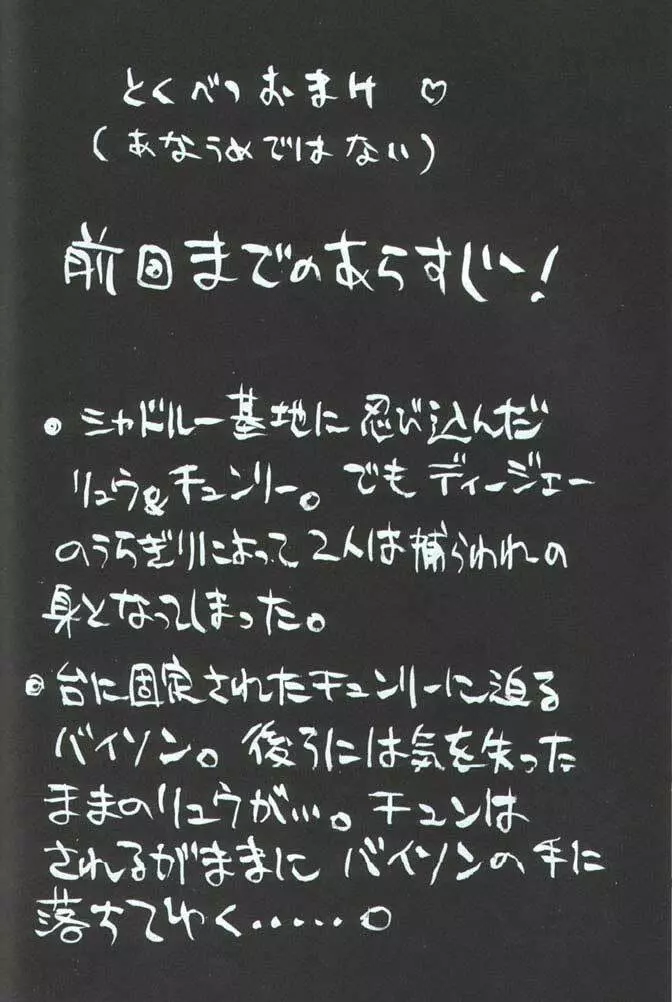 とくべつおまけ♡
(あなうめではない)
前回までのあらすじー!
・シャドルー基地に忍び込んだ
リュウ&チュンリー。でもディージェー
のうらぎりによって2人は捕らわれの
身となってしまった。
・台に固定されたチュンリーに迫る
バイソン。後ろには気を失った
ままのリュウが…。チュンは
されるがままにバイソンの手に
落ちてゆく……。